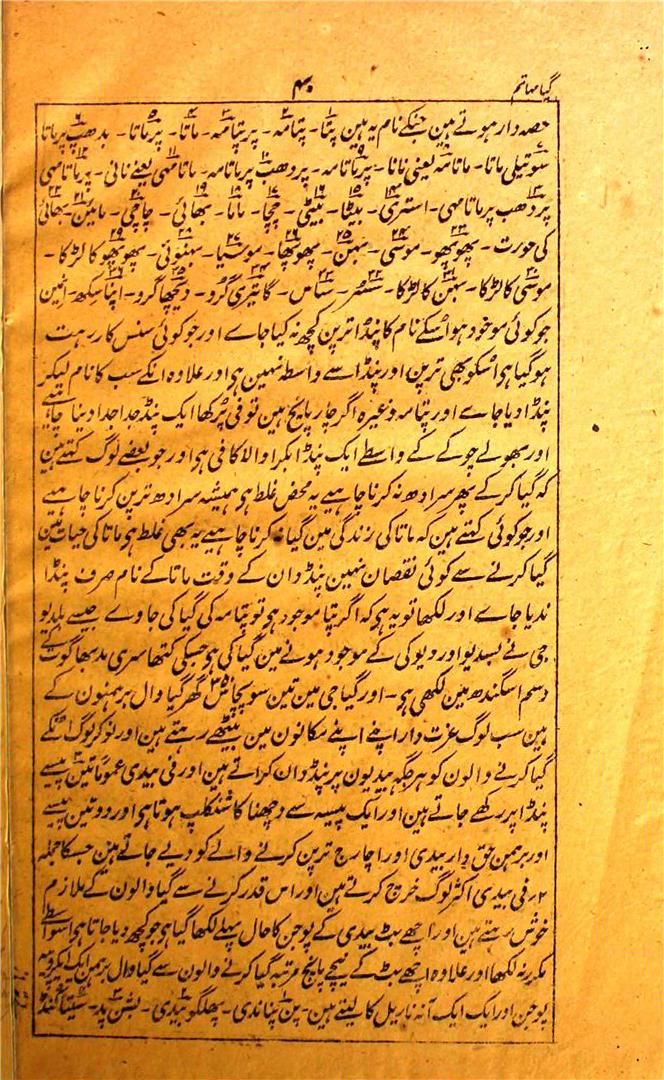 گیا مہاتم
۴۰
حصہ دار ہوتے ہین جنکے نام یہ ہین پتا۔ پتامہ۔ پرپتامہ۔ ماتا۔ پرماتا۔ بردھپ پرماتا
سوتیلی ماتا۔ ماتامہ یعنی نانا۔ پرماتامہ۔ پردھپ پرماتامہ۔ ماتامہی یعنے نانی۔ پرماتامہی
پردھپ پرماتامہی۔ استری۔ بیٹا۔ بیٹی۔ چچا۔ ماما۔ بھائی۔ چاچی۔ مامین۔ بھائی
کی عورت۔ پھوپھو۔ موسی۔ بہن۔ پھوپھا۔ موسیا۔ بہنوئی۔ پھوپھو کا لڑکا۔
موسی کا لڑکا۔ بہن کا لڑکا۔ سسر۔ ساس۔ گایتری گرو۔ دیچھا گرو۔ اپنا سکھ۔ انمین
جو کوئی موجود ہو اسکے نام کا پنڈا ترپن کچھ نہ کیا جاے اور جو کوئی سنسکار رہت
ہو گیا ہی اسکو بھی ترپن اور پنڈا سے واسطہ نہین ہی اور علاوہ انکے سب کا نام لیکر
پنڈا دیا جاے اور پتامہ وغیرہ اگر چار پانچ ہین تو فی پرکھا ایک پنڈ جدا جدا دینا چاہیے
اور بھولے چوکے کے واسطے ایک پنڈ ابکرا والا کافی ہی اور جو بعضے لوگ کہتے ہین
کہ گیا کرکے پھر سرادھ نہ کرنا چاہیے یہ محض غلط ہی ہمیشہ سرادھ ترپن کرنا چاہیے
اور جو کوئی کہتے ہین کہ ماتا کی زندگی مین گیا نہ کرنا چاہیے یہ بھی غلط ہی ماتا کی حیات مین
گیا کرنے سے کوئی نقصان نہین پنڈ دان کے وقت ماتا کے نام صرف پنڈا
ندیا جاے اور لکھا تو یہ ہی کہ اگر پتا موجود ہی تو پتامہ کی گیا کی جاوے جیسے بلدیو
جی نے بسدیو اور دیوکی کے موجود ہونے مین گیا کی ہی جسکی کتھا سری مدبھاگوت کے
دسم اسکندھ مین لکھی ہی۔ اور گیا جی مین تین سو پچاس ۳۵۰ گھر گیا وال برہمنون کے
ہین سب لوگ عزت دار اپنے اپنے مکانون مین بیٹھے رہتے ہین اور نوکر لوگ انکے
گیا کرنے والون کو ہر جگہ بیدیون پر پنڈ دان کراتے ہین اور فی بیدی عموماً تین پیسے
پنڈا پر رکھے جاتے ہین اور ایک پیسہ سے دچھنا کا سنکلپ ہوتا ہی اور دو تین پیسے
اور برہمن حق دار بیدی اور اچارج ترپن کرنے والے کو دیے جاتے ہین جسکا جملہ
۲؍ فی بیدی اکثر لوگ خرچ کرتے ہین اور اس قدر کرنے سے گیا والون کے ملازم
خوش رہتے ہین اور اچھے بٹ بیدی کے پوجن کا حال پہلے لکھا گیا ہی جو کچھ دیا جاتا ہی اسواسطے
مکرر نہ لکھا اور علاوہ اچھے بٹ کے نیچے پانچ مرتبہ گیا کرنے والون سے گیا وال برہمن ایک ایک روپیہ
پوجن اور ایک ایک آنہ ناریل کا لیتے ہین۔ پن پناندی۔ پھلگو بیدی۔ بشن پد۔ سیتا کنڈ